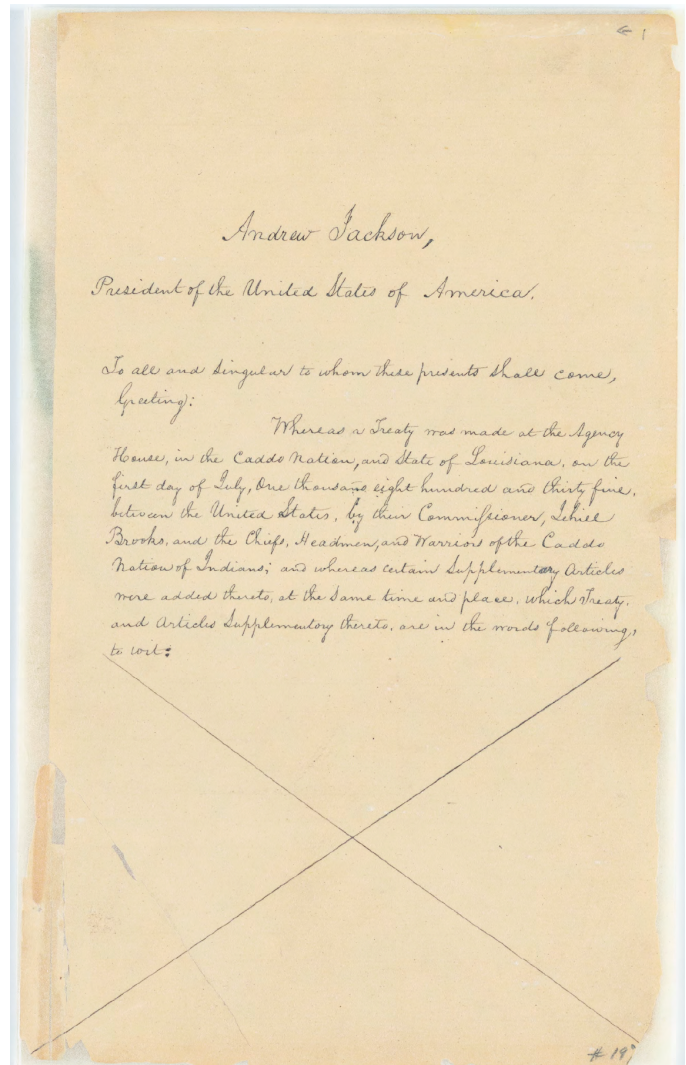 Andrew Jackson,
President of the United States of America.
To all and singular to whom these presents shall come,
Greeting:
Whereas a Treaty was made at the Agency
House, in the Caddo Nation, and State of Louisiana, on the
first day of July, One thousand eight hundred and thirty five,
between the United States, by their Commissioner, Jehiel
Brooks, and the Chiefs, Headmen, and Warriors of the Caddo
Nation of Indians; and whereas certain Supplementary Articles
were added thereto, at the same time and place, which Treaty,
and Articles Supplementary thereto, are in the words following,
to wit: